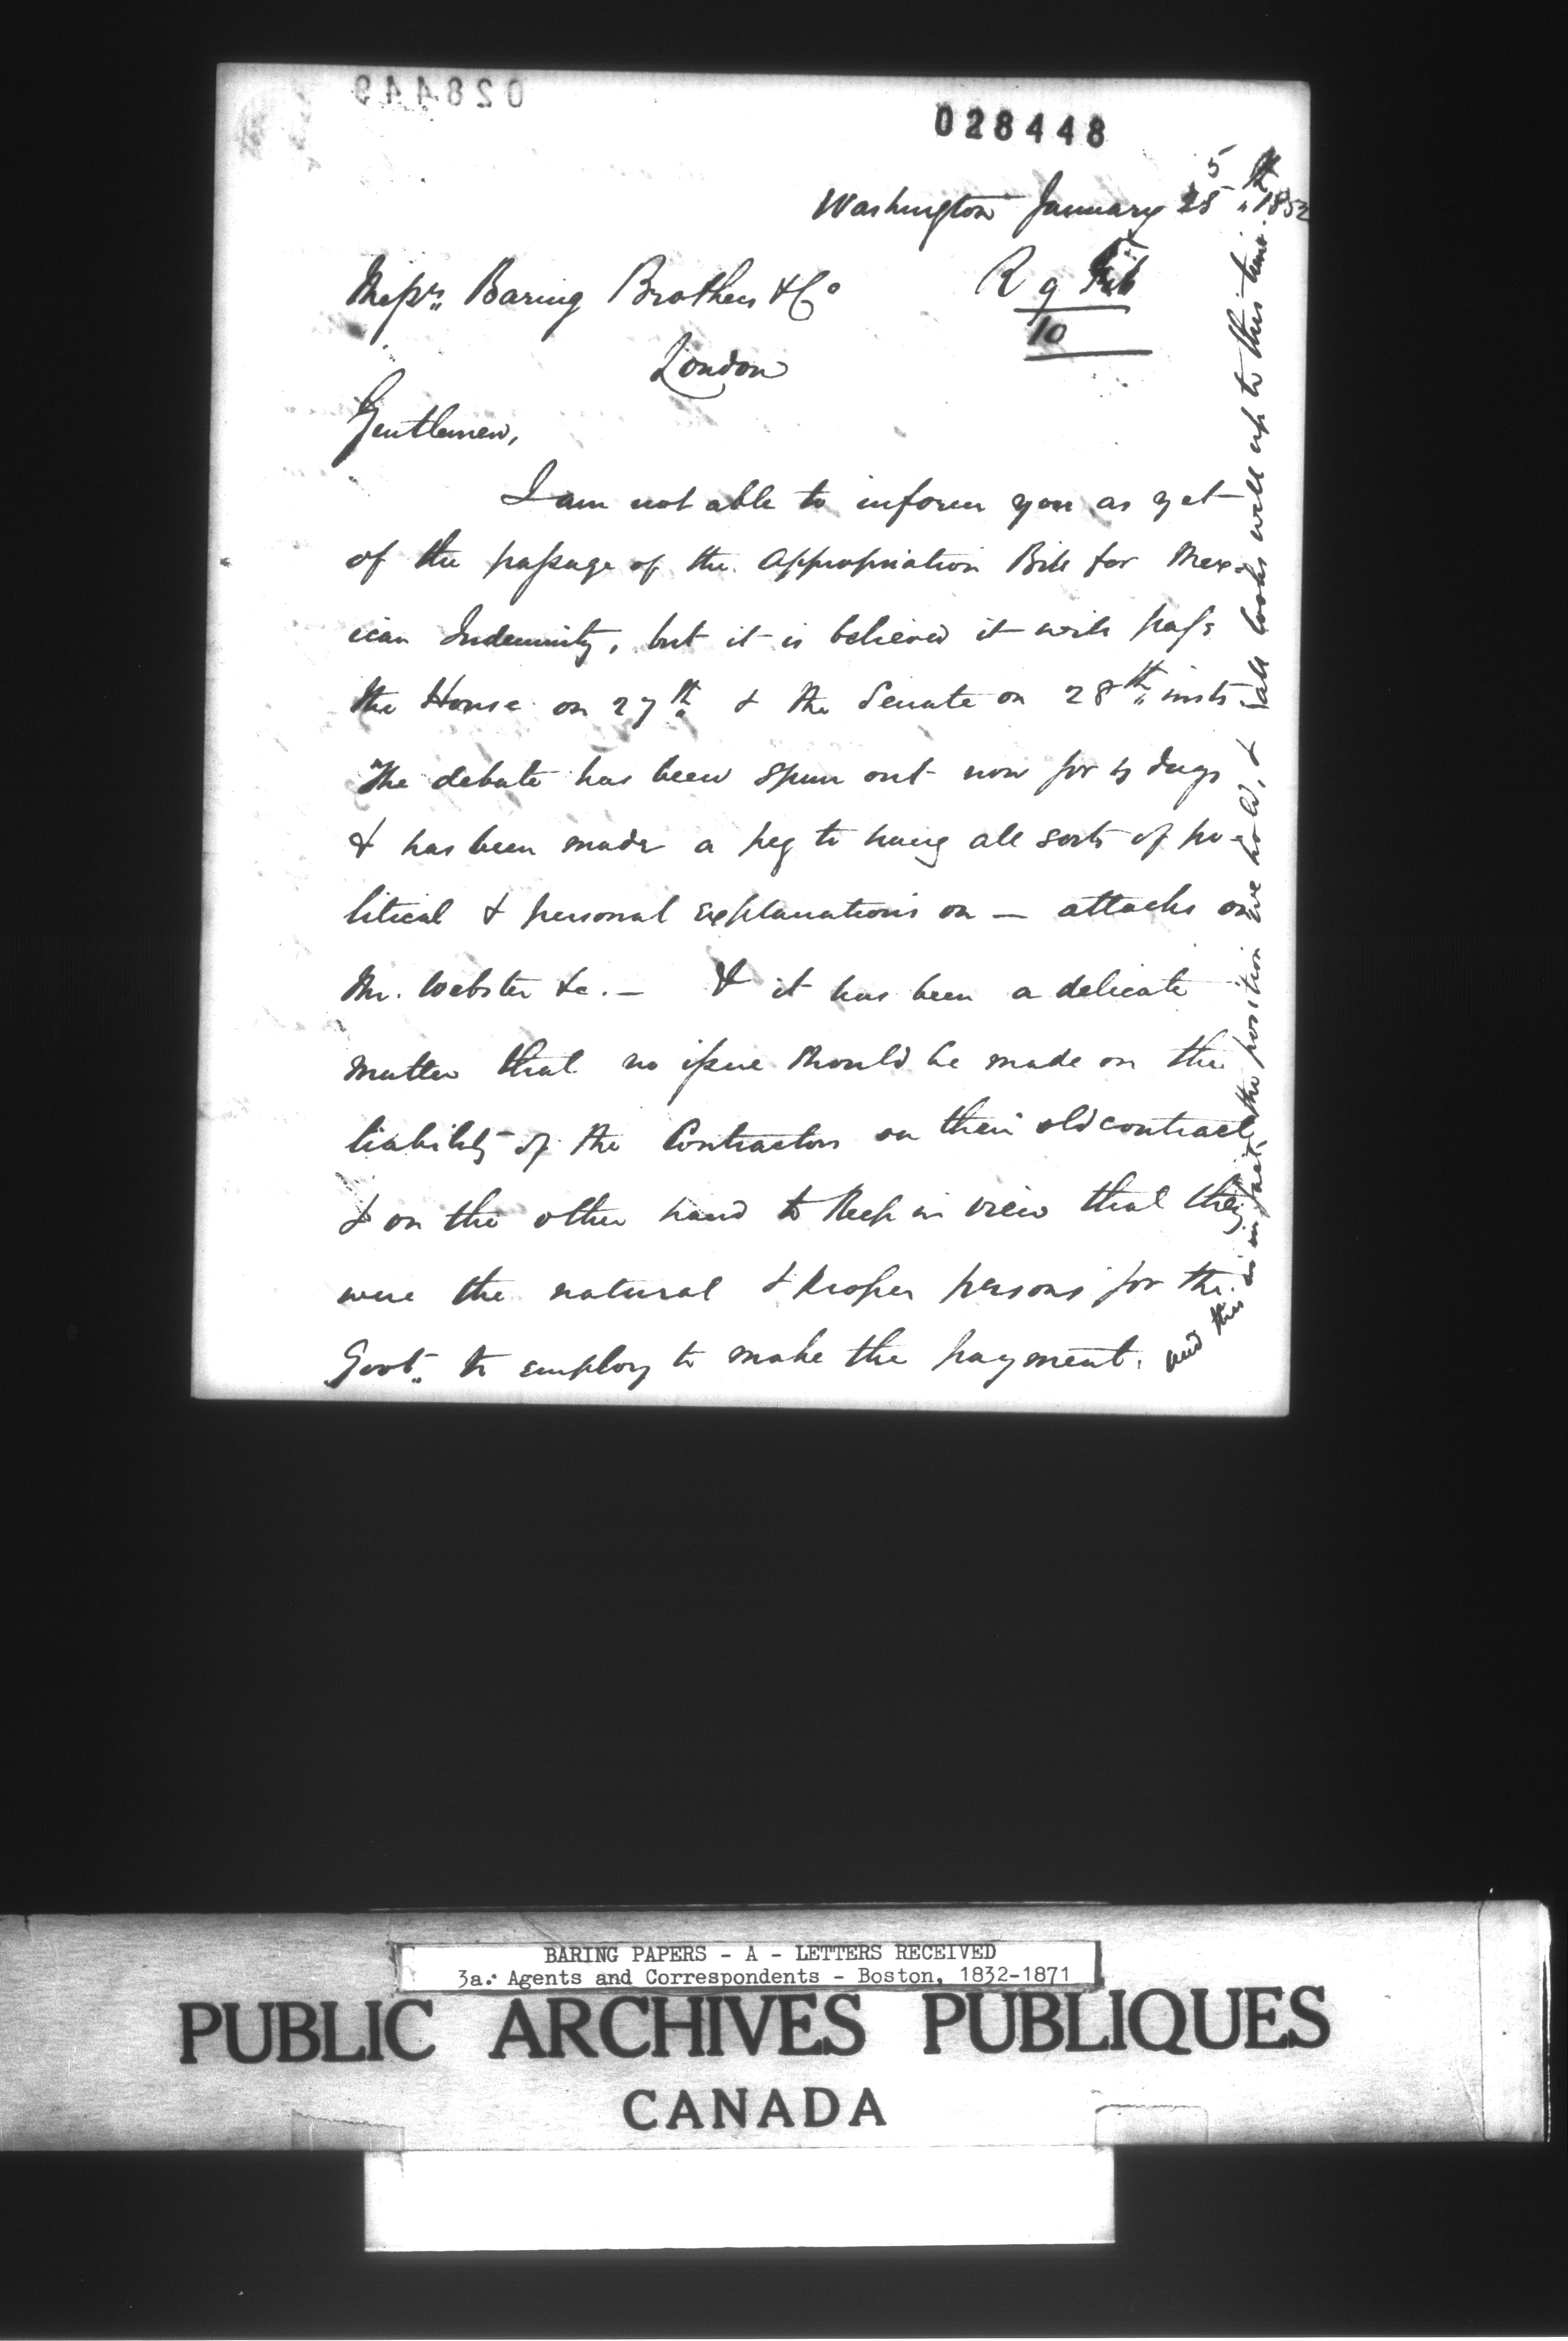 028449
028448
Washington January 25th 1852
Messrs. Baring Brothers & Co
R 9 Feb
10
London
Gentlemen,
I am not able to inform you as yet
of the passage of the Appropriation Bill for Mex-
ican Indemnity, but it is believed it will pass
the House on 27th & the Senate on 28th insts.
The debate has been spun out now for days
& has been made a peg to hang all sorts of po-
litical & personal explanations on — attacks on
Mr. Webster &c. — & it has been a delicate
matter that no issue should be made on the
liability of the Contractors on their old contract,
& on the other hand to keep in view that they
were the natural & proper persons for the
Govt. to employ to make the payment.
and this is in fact, the position we hold, & all looks well up to this time.
BARING PAPERS - A - LETTERS RECEIVED
3a.: Agents and Correspondents - Boston, 1832-1871
PUBLIC ARCHIVES PUBLIQUES
CANADA